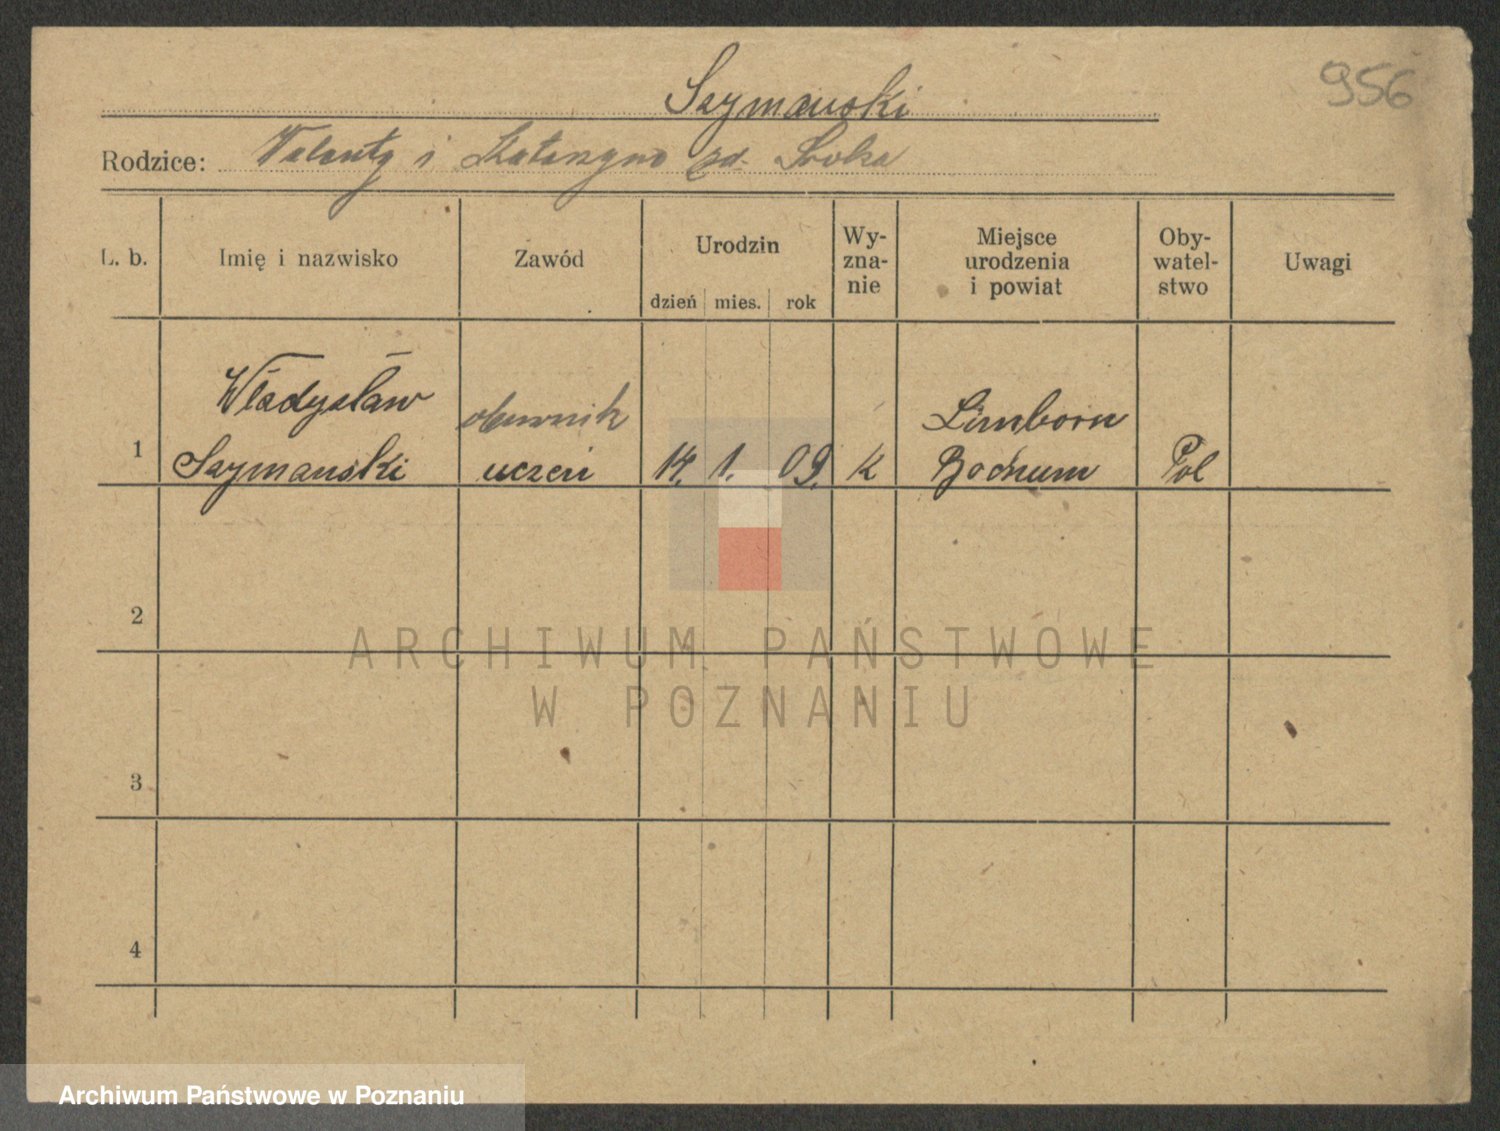 Szymański
956
Rodzice: Walenty i Katarzyna zd. Sroka
L. b.
Imię i nazwisko
Zawód
Urodzin
dzień mies. rok
Wy-
zna-
nie
Miejsce
urodzenia
i powiat
Oby-
watel-
stwo
Uwagi
1
Władysław
Szymański
uczeń
14. 1. 09.
K
Bochum
Pol
2
3
4
ARCHIWUM PAŃSTWOWE
W POZNANIU
Archiwum Państwowe w Poznaniu